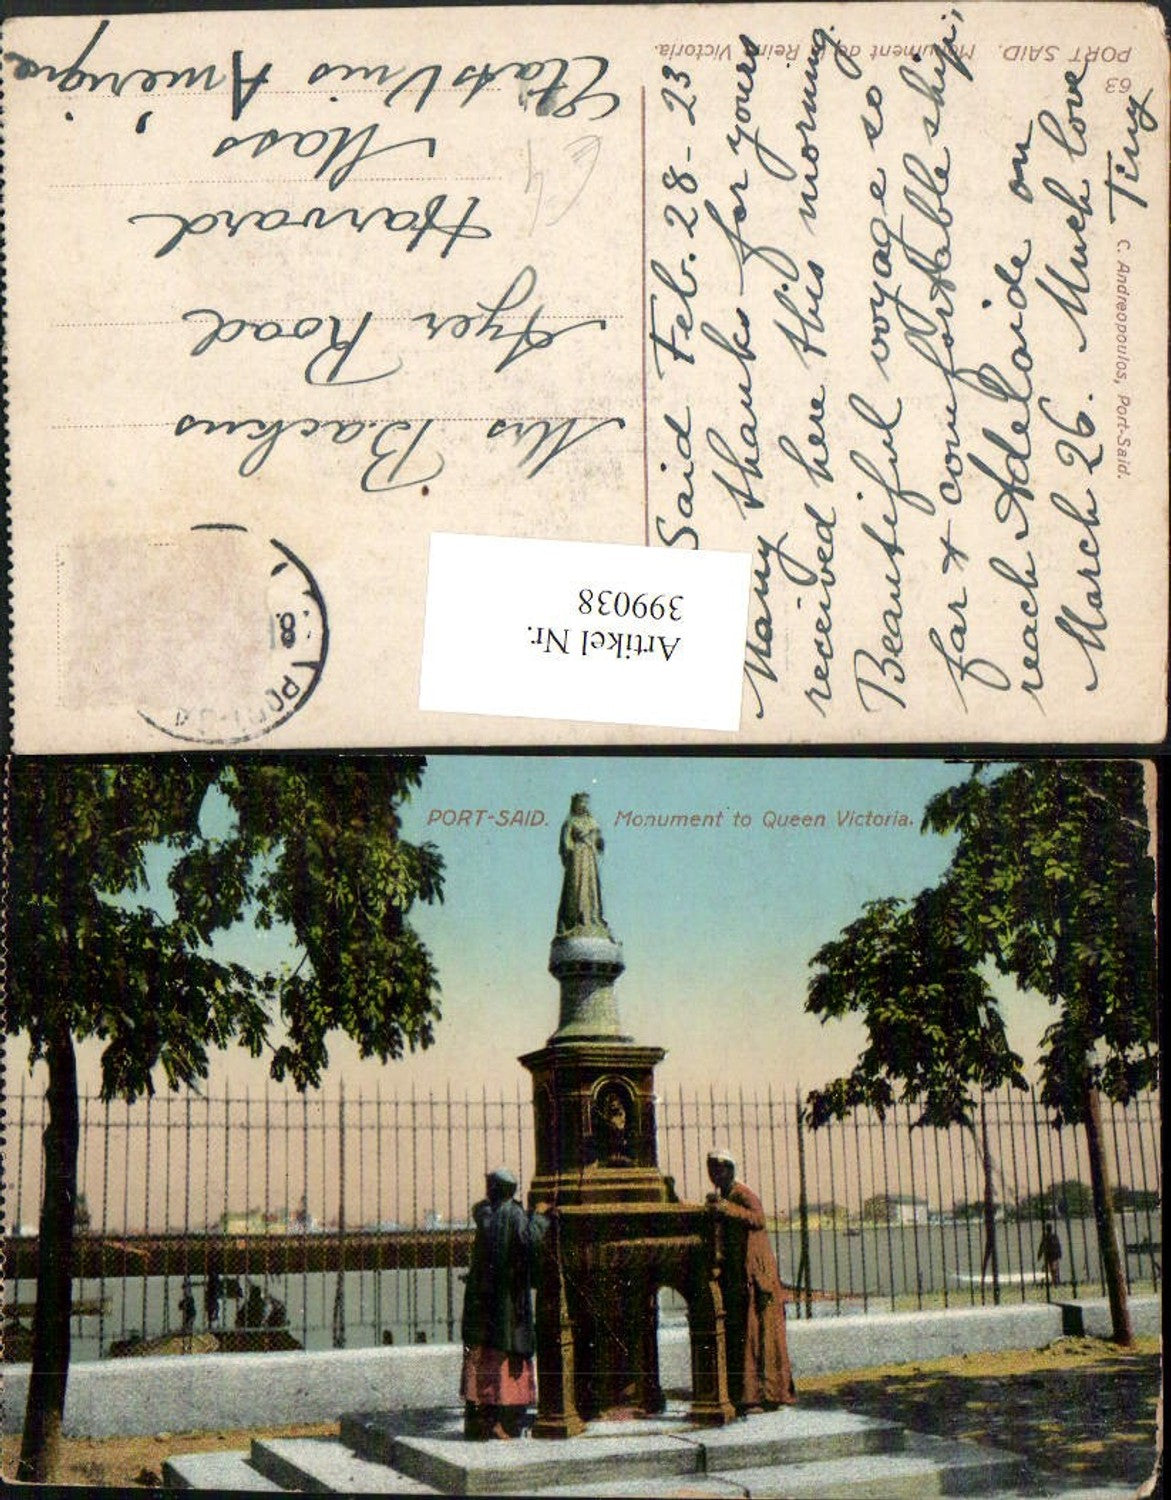 63
PORT SAID. Monument de la Reine Victoria.
Said Feb. 28-23
Many thanks for yours
received here this morning.
Beautiful voyage so
far + comfortable ship;
reach Adelaide on
March 26. Much love
Tiny
C. Andreopoulos, Port-Said.
Mrs Backus
Ayer Road
Harvard
Mass
Etats Unis Amerique
PORT-SA
8
Artikel Nr.
399038
PORT-SAID. Monument to Queen Victoria.